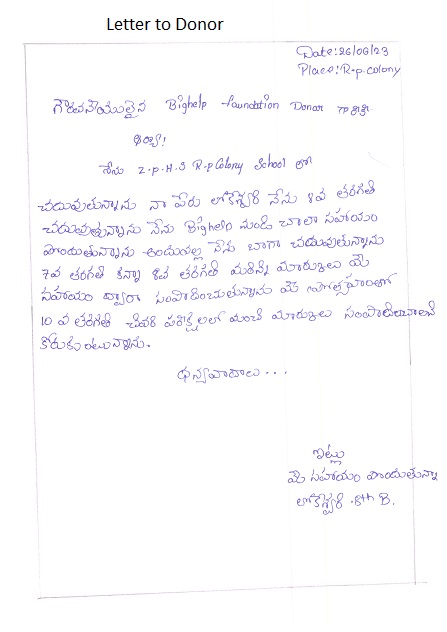 Letter to Donor
Date: 26/06/23
Place: R.p.colony
గౌరవనీయులైన Bighelp foundation Donor గారికి
అర్యా!
నేను Z.p.H.S R.p Colony School లో
చదువుతున్నాను నా పేరు లోకేశ్వరి నేను 8వ తరగతి
చదువుతున్నాను నేను Bighelp నుండి చాలా సహాయం
పొందుతున్నాను అందువల్ల నేను బాగా చదువుతున్నాను
7వ తరగతి కన్నా 8వ తరగతి మరిన్ని మార్కులు మీ
సహాయం ద్వారా సంపాదించుతున్నాను మీ ప్రోత్సాహంతో
10 వ తరగతి చివరి పరీక్షలలో మంచి మార్కులు సంపాదించాలని
కోరుకుంటున్నాను.
ధన్యవాదాలు...
ఇట్లు
మీ సహాయం పొందుతున్నా
లోకేశ్వరి .8th B.